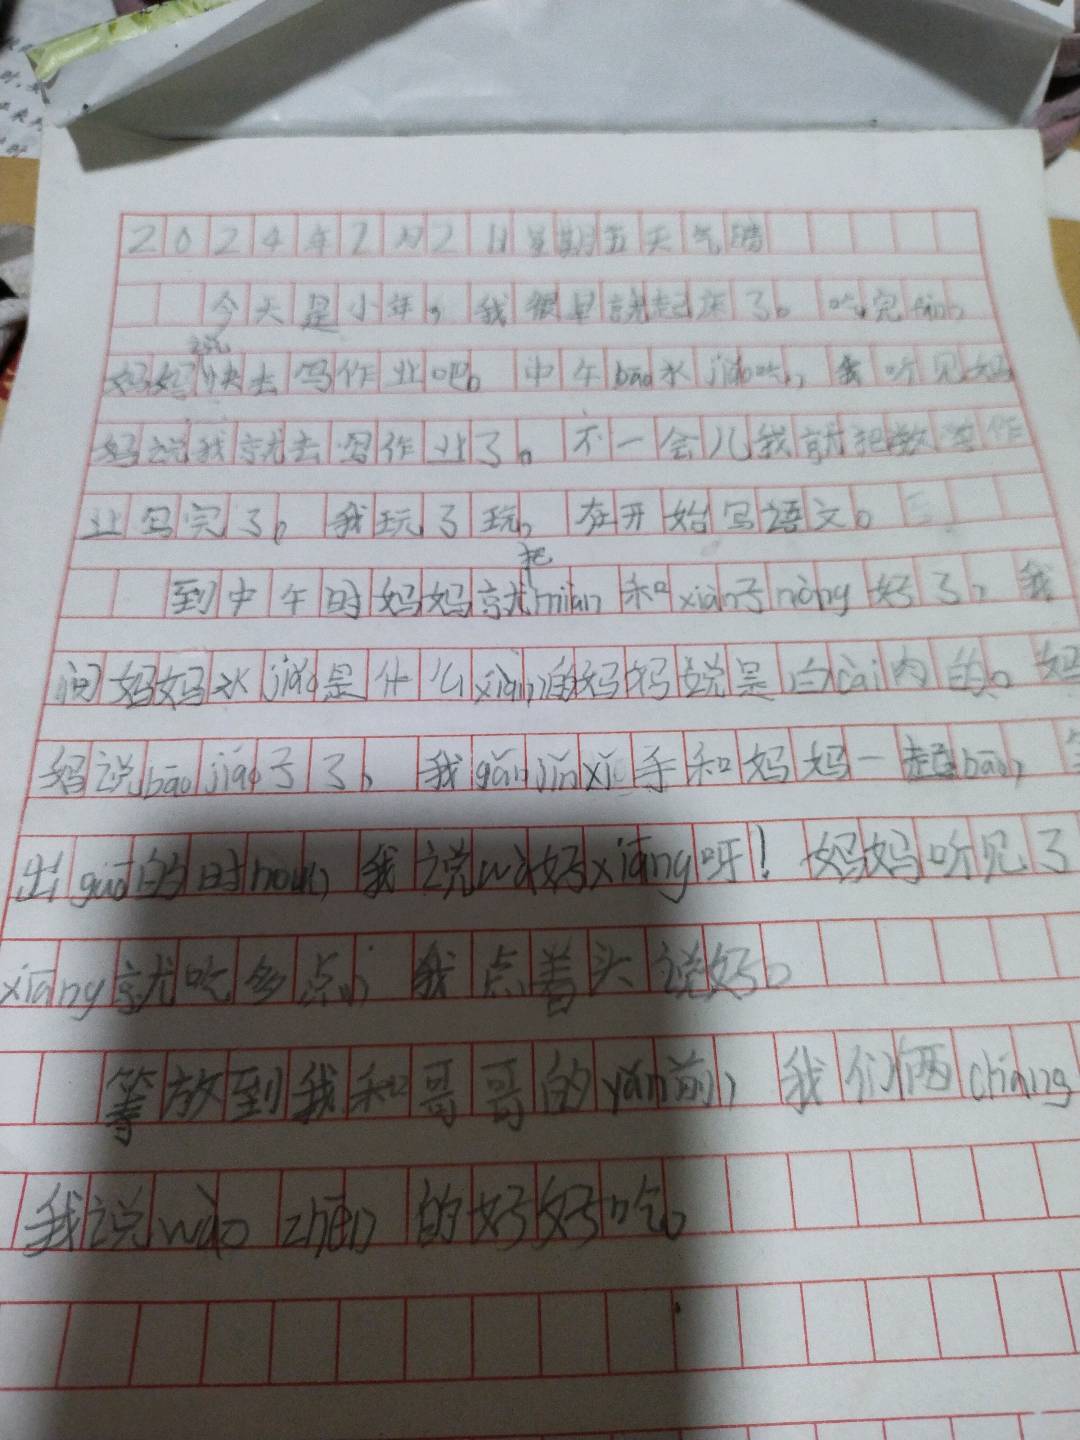 2024年2月2日星期五天气晴
今天是小年，我很早就起床了。吃完fàn，
妈妈说快去写作业吧。中午bāo水jiǎo吃，我听见妈
妈说我就去写作业了。不一会儿我就把数学作
业写完了。我玩了玩，在开始写语文。
到中午时妈妈就把miàn和xiàn子nòng好了，我
问妈妈水jiǎo是什么xiàn的妈妈说是白cài肉的。妈
妈说bāo jiǎo子了，我gǎn jǐn xǐ手和妈妈一起bāo，
出guō的时hou，我说wà好xiāng呀！妈妈听见了
xiāng就吃多点，我点着头说好。
等放到我和哥哥的yǎn前，我们俩cháng
我说wào zhēn的好好吃。